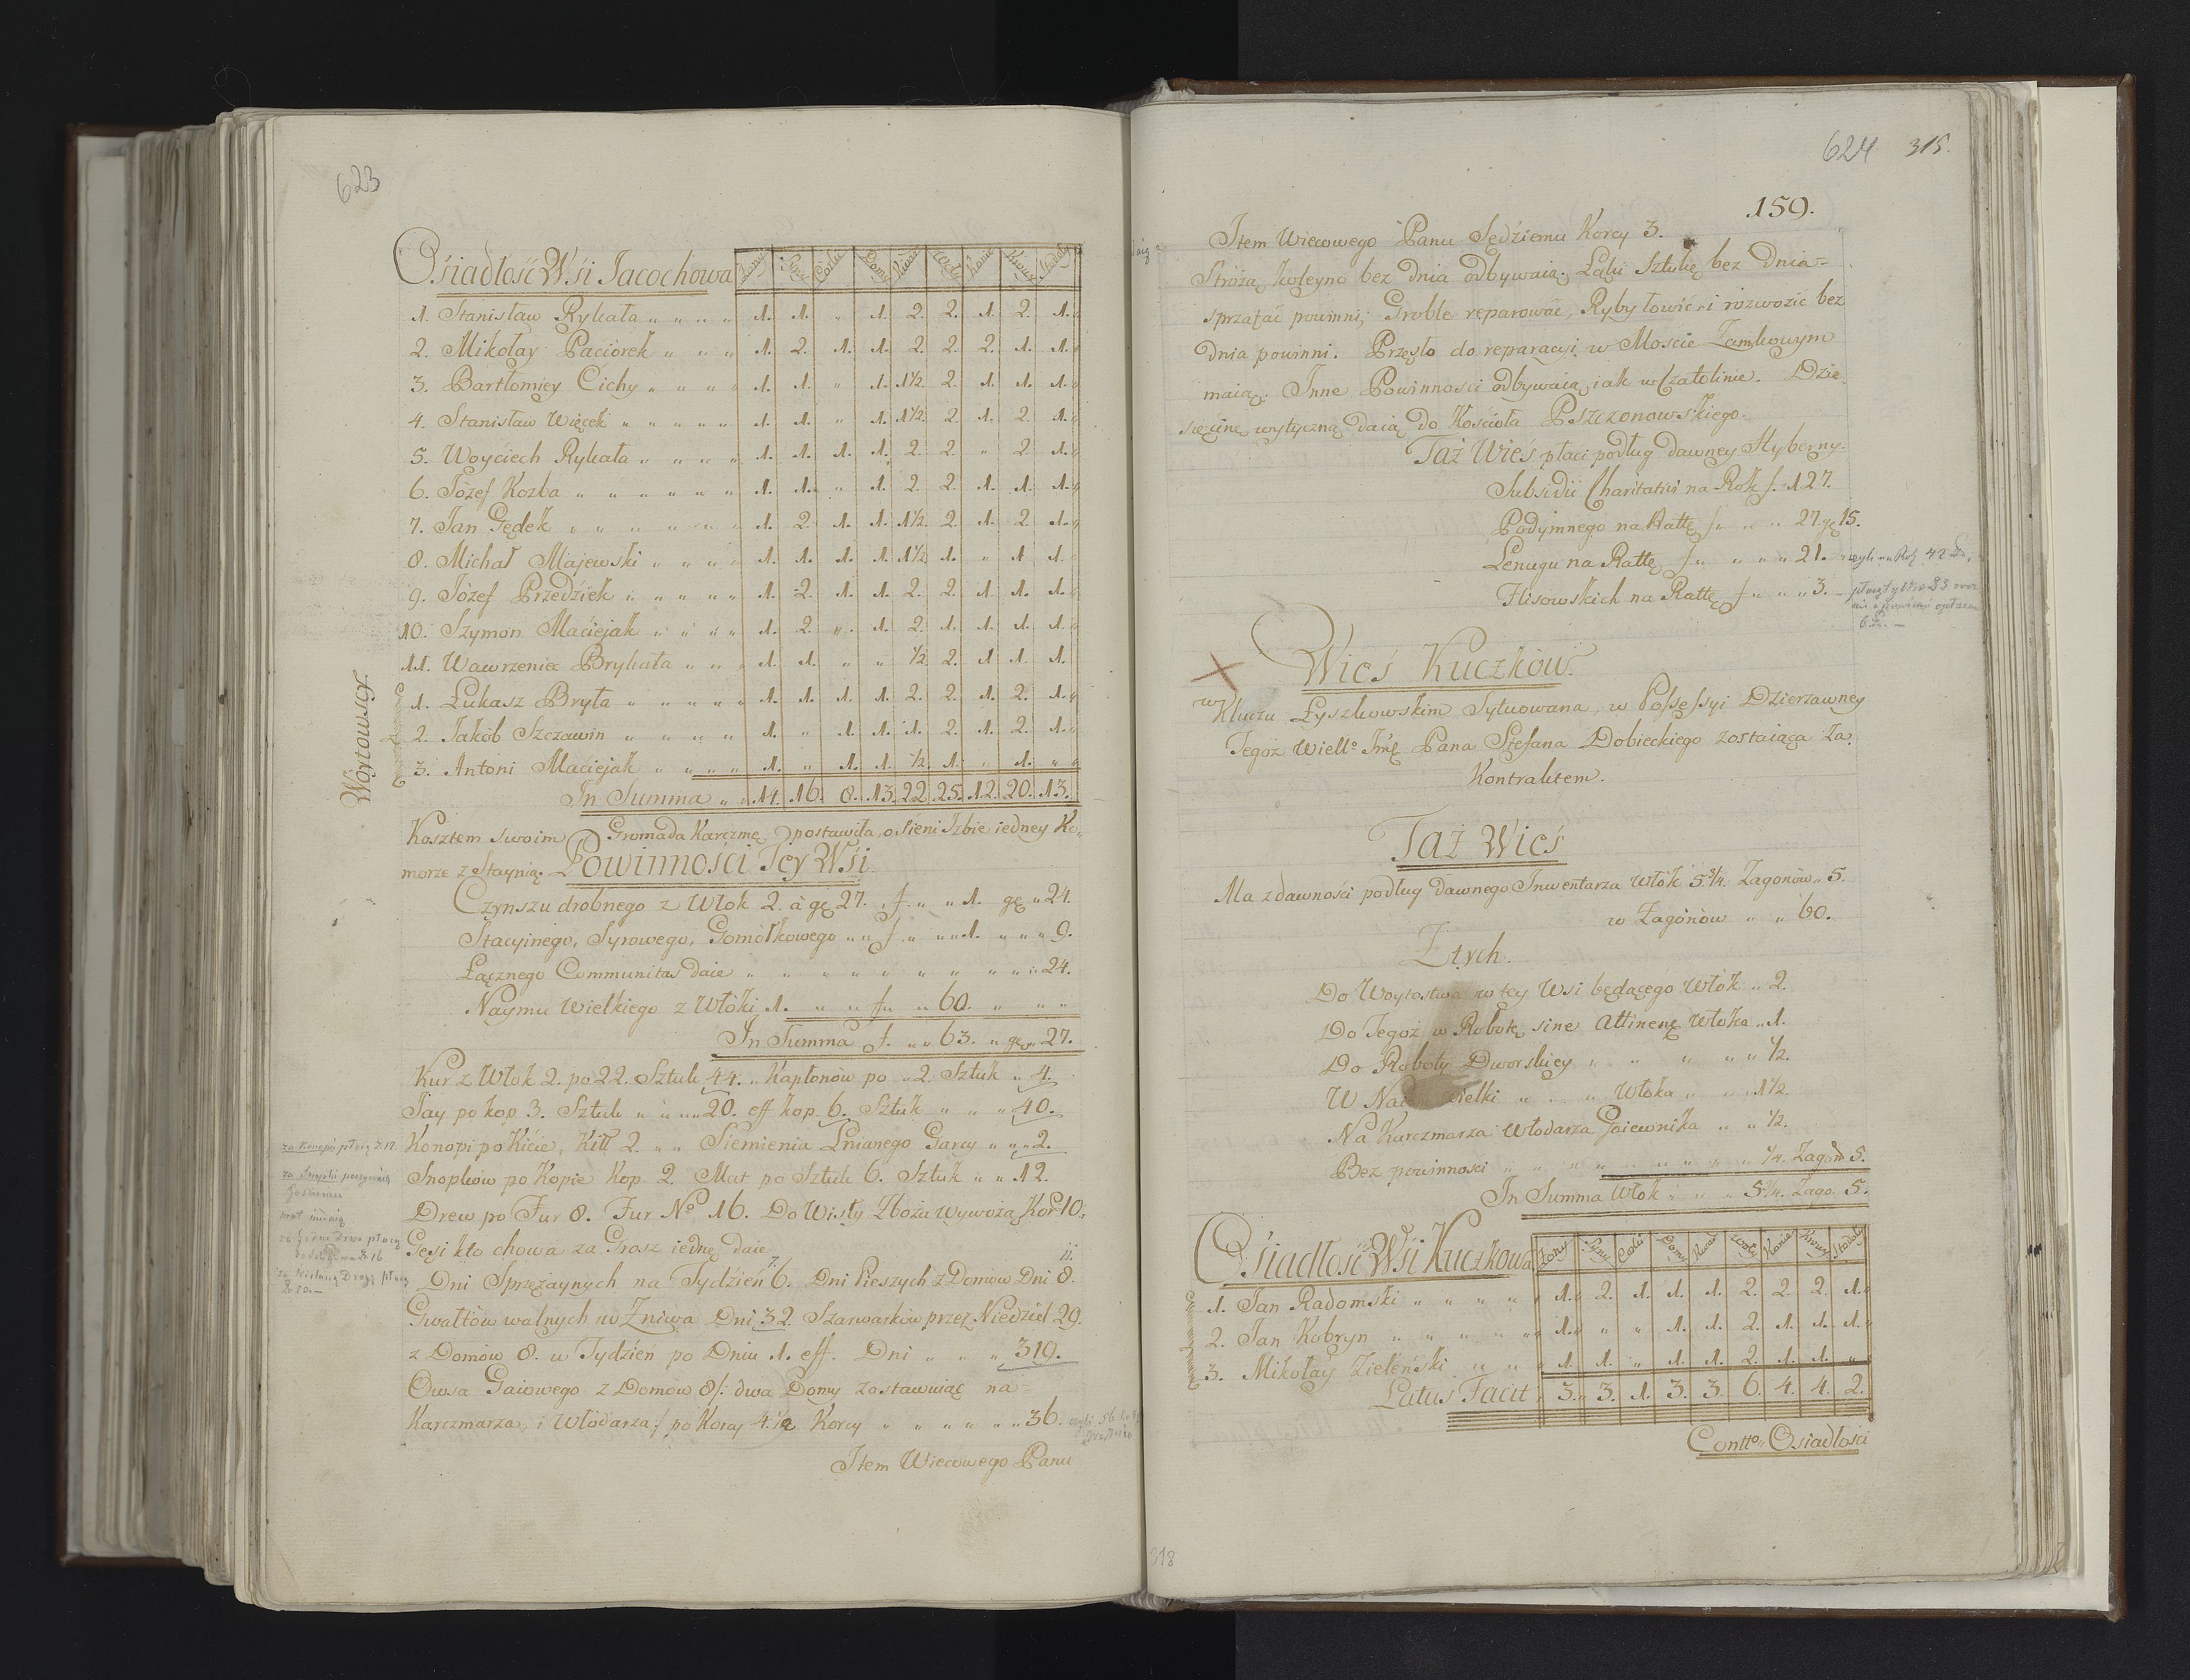 623
Osiadłość Wsi Jacochowa Żony Syny Corki Domy Kwar. Woły Konie Krowy Stodoły
1. Stanisław Rykała „ „ „ „ 1. 1. „ 1. 2. 2. 1. 2. 1.
2. Mikołay Paciorek „ „ „ 1. 2. 1. 1. 2. 2. 2. 1. 1.
3. Bartłomiey Cichy „ „ „ „ 1. 1. „ 1. 1½. 2. 1. 1. 1.
4. Stanisław Więcek „ „ „ „ „ 1. 1. „ 1. 1½. 2. 1. 2. 1.
5. Woyciech Rykała „ „ „ „ 1. 1. 1. 1. 2. 2. „ 2. 1.
6. Józef Kozba „ „ „ „ „ „ 1. 1. „ 1. 2. 2. 1. 1. 1.
7. Jan Gędek „ „ „ „ „ „ 1. 2. 1. 1. 1½. 2. 1. 2. 1.
8. Michał Majewski „ „ „ „ 1. 1. 1. 1. 1½. 1. „ 1. 1.
9. Józef Przedziek „ „ „ „ „ 1. 2. 1. 1. 2. 2. 1. 1. 1.
10. Szymon Maciejak „ „ „ „ „ 1. 2. „ 1. 2. 1. 1. 1. 1.
11. Wawrzeniec Brykała „ „ „ 1. 1. „ „ ½. 2. 1. 1. 1.
Woytowscy.
1. Łukasz Bryła „ „ „ „ „ 1. 1. 1. 1. 2. 2. 1. 2. 1.
2. Jakób Szczawin „ „ „ „ 1. „ 1. 1. 1. 2. 1. 2. 1.
3. Antoni Maciejak „ „ „ „ „ 1. „ 1. 1. ½. 1. „ 1. „
In Summa „ „ 14. 16. 8. 13. 22. 25. 12. 20. 13.
Kosztem swoim Gromada Karczmę postawiła, o Sieni Izbie iedney Ko-
morze z Staynią. Powinności Tey Wsi
Czynszu drobnego z Włok 2. à gę 27. f. „ „ 1. gę „ 24.
Stacyinego, Syrowego, Gomółkowego „ „ f. „ „ „ 1. „ „ „ 9.
Łącznego Communitas daie „ „ „ „ „ „ „ „ „ 24.
Naymu Wielkiego z Włóki 1. „ „ f. „ „ 60. „ „ „
In Summa f. „ „ 63. „ gę „ 27.
Kur z Włok 2. po 22. Sztuk 44. „ Kapłonów po „ 2. Sztuk „ 4.
Jay po kop 3. Sztuk „ „ „ 20. eff kop. 6. Sztuk „ „ „ 40.
Konopi po Kicie, Kitt 2. „ „ Siemienia Lnianego Garcy „ „ „ 2.
Snopków po Kopie Kop. 2. Mat po Sztuk 6. Sztuk „ „ 12.
Drew po Fur 8. Fur No 16. Do Wisły Zboża wywożą Kor. 10.
Gęsi kto chowa za Grosz iednę daie
7. 11.
Dni Sprzężaynych na Tydzień 6. Dni Pieszych z Domów Dni 8.
Gwałtów walnych w Żniwa Dni 32. Szarwarków przez Niedziel 29.
z Domów 8. w Tydzień po Dniu 1. eff. Dni „ „ „ 319.
Owsa Gaiowego z Domów 8/: dwa Domy zostawuiąc na
Karczmarza, i Włodarza :/ po Korcy 4½ Korcy „ „ „ „ „ 36.
Item Wiecowego Panu
za Konopie płacą
za Snopki
624 315.
159.
Item Wiecowego Panu Sędziemu Korcy 3.
Stróżą koleyno bez Dnia odbywaią. Łąki Sztukę bez Dnia
sprzątać powinni, Groble reparować, Ryby łowić i rozwozić bez
Dnia powinni. Przęsło do reparacyi w Moscie Zamkowym
maią. Inne Powinnosci odbywaią iak w Czatolinie. Dzie-
sięcinę wytyczną daią do Kościoła Pszczonowskiego.
Taż Wieś płaci podług dawney Hyberny
Subsidii Charitativi na Rok f. 127.
Podymnego na Rattę f „ „ „ 27. gę 15.
Lenugu na Rattę f „ „ „ „ 21.
Flisowskich na Rattę f „ „ „ 3.
Wieś Kuczków.
w Kluczu Łyszkowskim Sytuowana, w Possessyi Dzierżawney
Tegoż Wielło Imę Pana Stefana Dobieckiego zostaiąca Za
Kontraktem.
Taż Wieś
Ma zdawności podług dawnego Inwentarza Włók 5¾. Zagonów „ 5.
w Zagonów „ „ 60.
Z tych.
Do Woytostwa w tey Wsi będącego Włók „ 2.
Do Tegoż w Robotę sine Attinen. Włóka „ 1.
Do Roboty Dworskiey „ „ „ „ „ ½.
W Wielki „ „ „ Włoka „ „ 1½.
Na Karczmarza Włodarza Gaiewnika „ „ ½.
Bez powinnosci „ „ „ „ „ „ „ „ ¼. Zagon 5.
In Summa Włok „ „ „ 5¾. Zago. 5.
Osiadłość Wsi Kuczkowa Żony Syny Corki Domy Kwar. Woły Konie Krowy Stodoły
1. Jan Radomski „ „ „ „ „ 1. 2. 1. 1. 1. 2. 2. 2. 1.
2. Jan Kobryn „ „ „ „ „ „ 1. „ „ 1. 1. 2. 1. 1. 1.
3. Mikołay Zieleński „ „ „ 1. 1. „ 1. 1. 2. 1. 1. „
Latus Facit 3. 3. 1. 3. 3. 6. 4. 4. 2.
Contto. Osiadłości
318